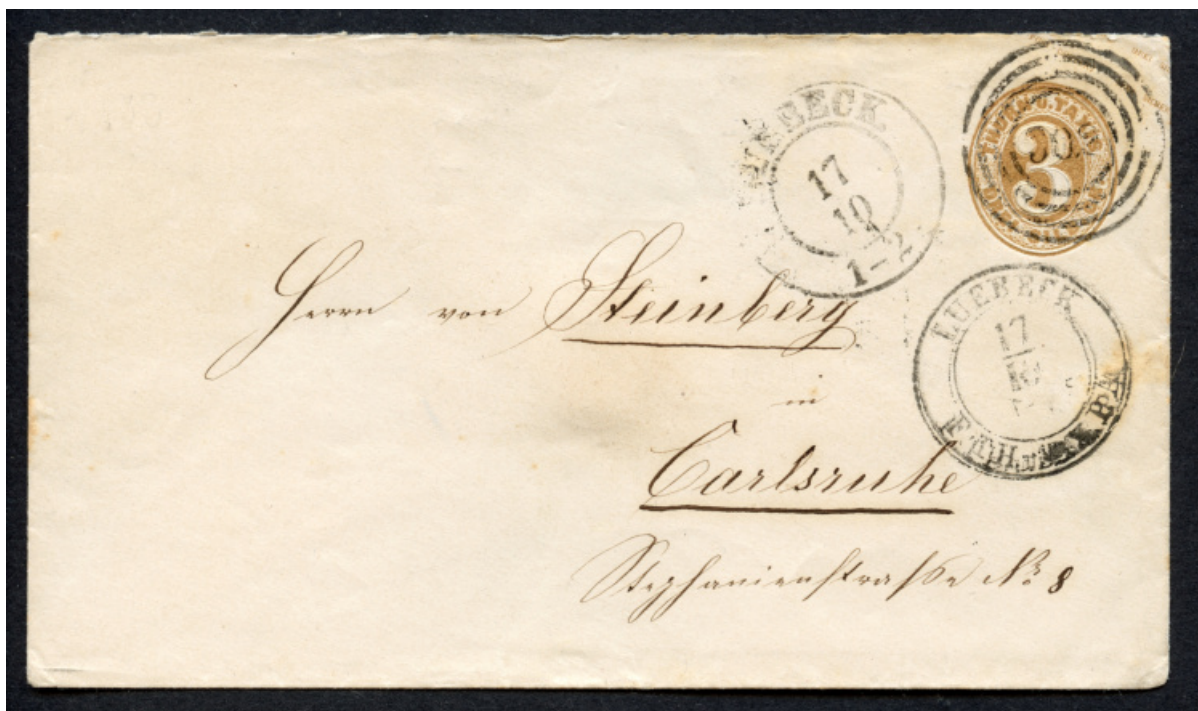 LUEBECK
17
10
1-2
THURN U. TAXIS
3
LUEBECK
17
10
Herrn von Steinberg
in
Carlsruhe
Stephanienstraße No. 8